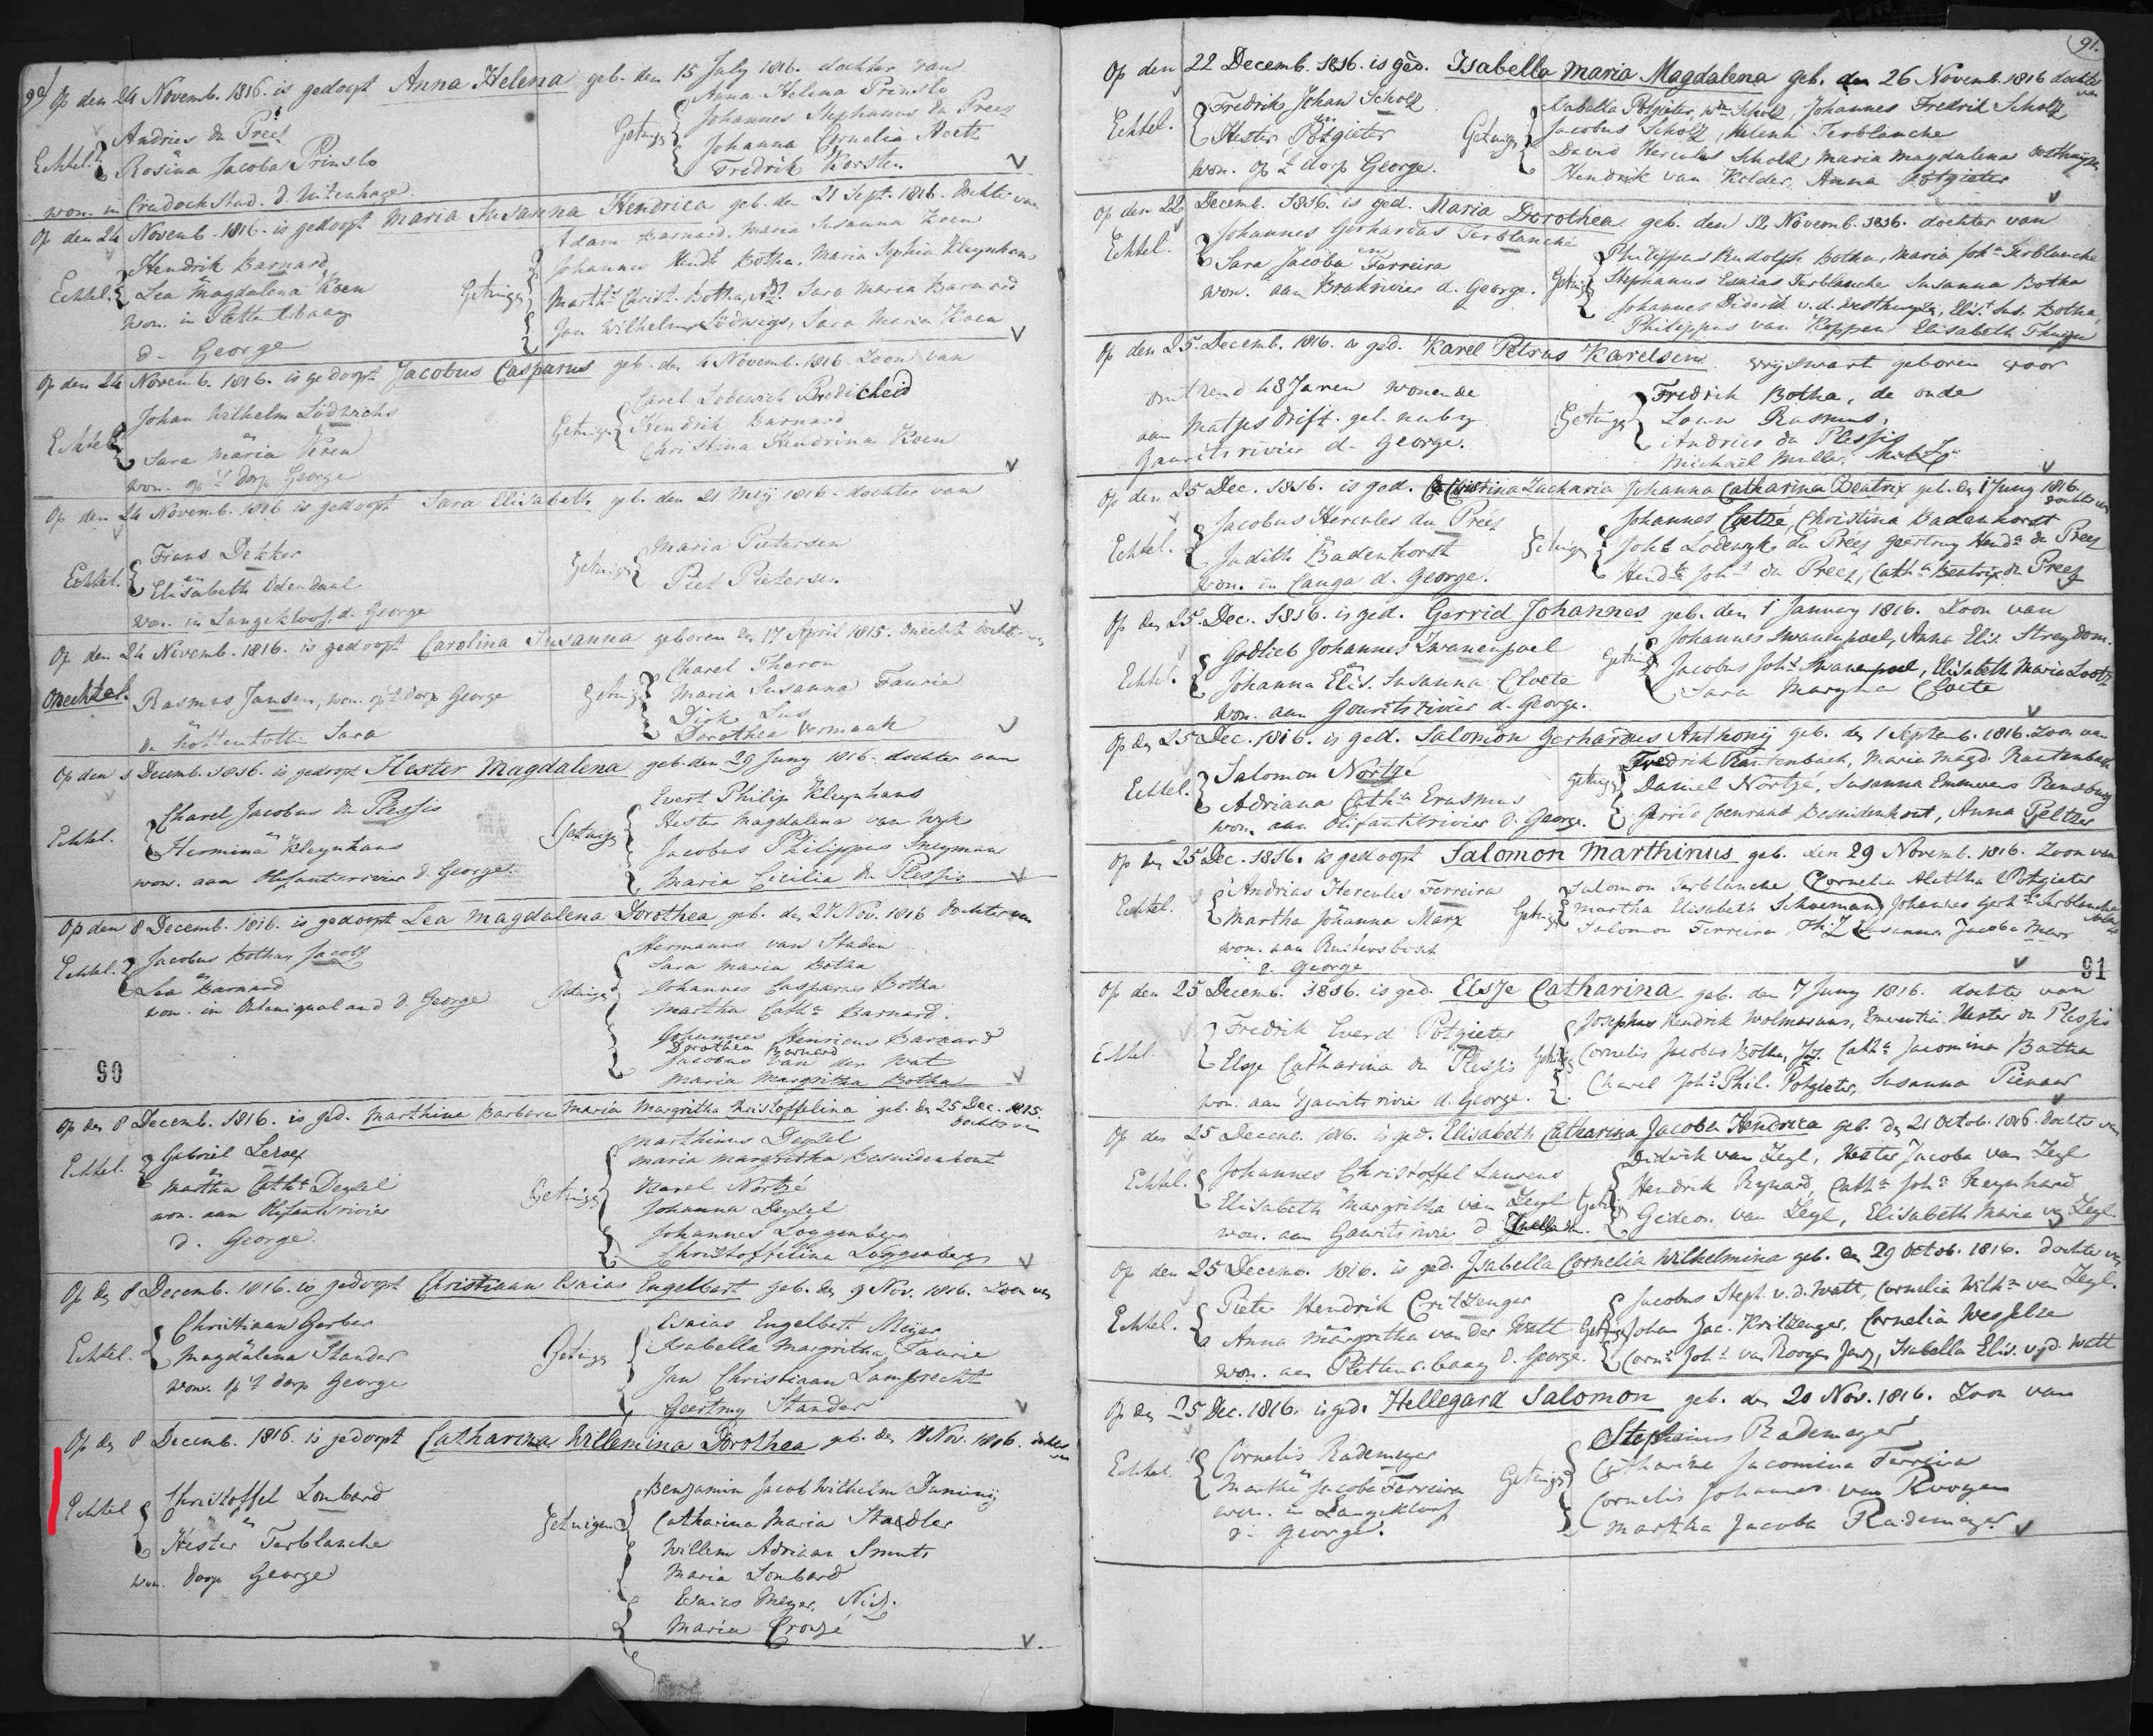 90
Op den 24 Novemb. 1816. is gedoopt Anna Helena geb. den 15 July 1816. dochter van
Echtel. Andries du Preez
en
Rosina Jacoba Prinslo
won. in Cradock Stad. d. Uitenhage
Getuigen Anna Helena Prinslo
Johannes Stephanus du Preez
Johanna Cornelia
Fredrik Korsten
Op den 24 Novemb. 1816. is gedoopt Maria Susanna Hendrica geb. den 21 Sept. 1816. dochter van
Echtel. Hendrik Barnard
en
Lea Magdalena Koen
won. in Plettenb.baay
d. George
Getuigen Adam Barnard. Maria Susanna Koen
Johannes Hendk Botha. Maria Sophia Kleynhans
Marths Christ. Botha, Sara Maria Barnard
Jan Wilhelm Lödwigs, Sara Maria Koen
Op den 24 Novemb. 1816. is gedoopt Jacobus Casparus geb. den 4 Novemb. 1816. Zoon van
Echtel. Johan Wilhelm Lüdwichs
en
Sara Maria Koen
won. op 't dorp George
Getuigen Carel Lodewich Bredicheid
Hendrik Barnard
Christina Hendrina Koen
Op den 24 Novemb. 1816 is gedoopt Sara Elisabeth geb. den 21 Meij 1816. dochter van
Echtel. Frans Dekker
en
Elisabeth Odendaal
won. in Langekloof d. George
Getuigen Maria Pietersen
Piet Pietersen
Op den 24 Novemb. 1816. is gedoopt Carolina Susanna geboren den 17 April 1815. onechte dochter van
Onechtel. Rasmus Jansen, won. op 't dorp George
en
de hottentottin Sara
Getuigen Charel Theron
Maria Susanna Fourie
Dirk Lus
Dorothea Vermaak
Op den 1 Decemb. 1816. is gedoopt Hester Magdalena geb. den 29 Juny 1816. dochter van
Echtel. Charel Jacobus du Plessis
en
Hermina Kleynhans
won. aan Olifantsrivier d. George.
Getuigen Evert Philip Kleynhans
Hester Magdalena van Wyk
Jacobus Philippus Snyman
Maria Cicilia du Plessis
Op den 8 Decemb. 1816. is gedoopt Lea Magdalena Dorothea geb. den 27 Nov. 1816 dochter van
Echtel. Jacobus Bothas Jacobz
en
Lea Barnard
won. in Outeniqualand d. George
Getuigen Hermanus van Staden
Sara Maria Botha
Johannes Casparus Botha
Martha Catha Barnard.
Johannes Henricus Barnard
Dorothea Barnard
Jacobus van der Wat
Maria Margritha Botha
90
Op den 8 Decemb. 1816. is ged. Marthina Barbara Maria Margritha Kristoffelina geb. den 25 Dec. 1815.
dochter van
Echtel. Gabriel Leroex
en
Martha Catha Deyzel
won. aan Olifantsrivier
d. George
Getuigen Marthinus Deyzel
Maria Margritha Besuidenhout
Karel Nortzé
Johanna Deyzel
Johannes Loggenberg
Christoffelina Loggenberg
Op den 8 Decemb. 1816. is gedoopt Christiaan Esaias Engelbert geb. den 9 Nov. 1816. Zoon van
Echtel. Christiaan Gerber
en
Magdalena Stander
won. op 't dorp George
Getuigen Esaias Engelbert Meijer
Isabella Margritha Fourie
Jan Christiaan Lamprecht
Geertruy Stander
Op den 8 Decemb. 1816. is gedoopt Catharina Willemina Dorothea geb. den 17 Nov. 1816. dochter
van
Echtel Christoffel Lombard
en
Hester Terblanche
won. dorp George
Getuigen Benjamin Jacob Wilhelm Duminij
Catharina Maria Stadler
Willem Adriaan Smuts
Maria Lombard
Esaias Meyer, Nicz.
Maria Cronjé
91.
Op den 22 Decemb. 1816. is ged. Isabella Maria Magdalena geb. den 26 Novemb. 1816 dochter
van
Echtel. Fredrik Johan Scholz
en
Hester Potgieter
won. op 't dorp George.
Getuigen Isabella Potgieter, wde Scholz, Johannes Fredrik Scholz
Jacobus Scholz, Helena Terblanche
David Hercules Scholz, Maria Magdalena Oosthuysen
Hendrik van Kelder, Anna Potgieter
Op den 22 Decemb. 1816. is ged. Maria Dorothea geb. den 12 Novemb. 1816. dochter van
Echtel. Johannes Gerhardus Terblanche
en
Sara Jacoba Ferreira
won. aan Brakrivier d. George.
Getuigen Philippus Rudolph Botha, Maria Joha Terblanche
Stephanus Esaias Terblanche Susanna Botha
Johannes Diderik v. d. Westhuyzen, Elis. Sus. Botha,
Philippus van Koppen Elisabeth
Op den 25. Decemb. 1816. is ged. Karel Petrus Karelsen vryzwart geboren voor
omtrend 48 Jaren wonende
aan Matjesdrift. gel. naby
Gauritsrivier d. George.
Getuigen Fredrik Botha, de oude
Louw Rasmus,
Andries du Plessis
Michael Muller, Michlz.
Op den 25 Dec. 1816. is ged. Christina Zacharia Johanna Catharina Beatrix geb. den 1 Juny 1816.
dochter van
Echtel. Jacobus Hercules du Preez
en
Judith Badenhorst
won. in Canga d. George.
Getuigen Johannes Coetzé, Christina Badenhorst
Johs Lodewyk du Preez Geertruy Henda du Preez
Hendk Johs du Preez, Catha Beatrix du Preez
Op den 25. Dec. 1816. is ged. Gerrid Johannes geb. den 1 January 1816. Zoon van
Echtel. Godlieb Johannes Zwanenpoel
en
Johanna Elis. Susanna Cloete
won. aan Gouritsrivier d. George.
Getuigen Johannes Swanepoel, Anna Elis. Streydom.
Jacobus Johs Swanepoel, Elisabeth Maria Lootz
Sara Maryna Cloete
Op den 25 Dec. 1816. is ged. Salomon Gerhardus Anthonij geb. den 1 Septemb. 1816. Zoon van
Echtel. Salomon Nortzé
en
Adriana Catha Erasmus
won. aan Olifantsrivier d. George.
Getuigen Fredrik Rautenbach, Maria Magd. Rautenbach
Daniel Nortzé, Susanna Rensburg
Gerrid Coenraad Besuidenhout, Anna Peltzer
Op den 25 Dec. 1816. is gedoopt Salomon Marthinus geb. den 29 Novemb. 1816. Zoon van
Echtel. Andrias Hercules Ferreira
en
Martha Johanna Marx
won. aan Ruiterbosch
d. George
Getuigen Salomon Terblanche Cornelia Alettha Potgieter
Martha Elisabeth Schoeman, Johannes Gerhs Terblanche
Salomon Ferreira, Thz. Susanna Jacoba Marx
91
Op den 25 Decemb. 1816. is ged. Elsje Catharina geb. den 7 Juny 1816. dochter van
Echtel. Fredrik Everd Potgieter
en
Elsje Catharina du Plessis
won. aan Gauritsrivier d. George.
Getuigen Josephus Hendrik Wolmarans, Emerentia Hester du Plessis
Cornelis Jacobus Botha, Jz. Catha Jacomina Botha
Charel Johs Phil. Potgieter, Susanna Pienaar
Op den 25 Decemb. 1816. is ged. Elisabeth Catharina Jacoba Hendrica geb. den 21 Octob. 1816. dochter van
Echtel. Johannes Christoffel Laurens
en
Elisabeth Margritha van Zeyl
won. aan Gaurits rivier d. Zwellend.
Getuigen Diderik van Zeyl, Hester Jacoba van Zeyl
Hendrik Rynard, Catha Joha Reynhard
Gideon van Zeyl, Elisabeth Maria van Zeyl
Op den 25 Decemb. 1816. is ged. Isabella Cornelia Wilhelmina geb. den 29 Octob. 1816. dochter van
Echtel. Pieter Hendrik Critzenger
en
Anna Margritha van der Watt
won. aan Plettenb.baay d. George.
Getuigen Jacobus Steph. v. d. Watt, Cornelia Wilha van Zeyl.
Johan Jac. Kritzenger, Cornelia Wesselse
Corns Johs van Rooyen Janz, Isabella Elis. v. d. Watt
Op den 25 Dec. 1816. is ged. Hellegard Salomon geb. den 20 Nov. 1816. Zoon van
Echtel. Cornelis Rademeyer
en
Martha Jacoba Ferreira
won. in Langekloof
d. George.
Getuigen Stephanus Rademeyer
Catharina Jacomina Ferreira
Cornelis Johannes van Rooyen
Martha Jacoba Rademeyer